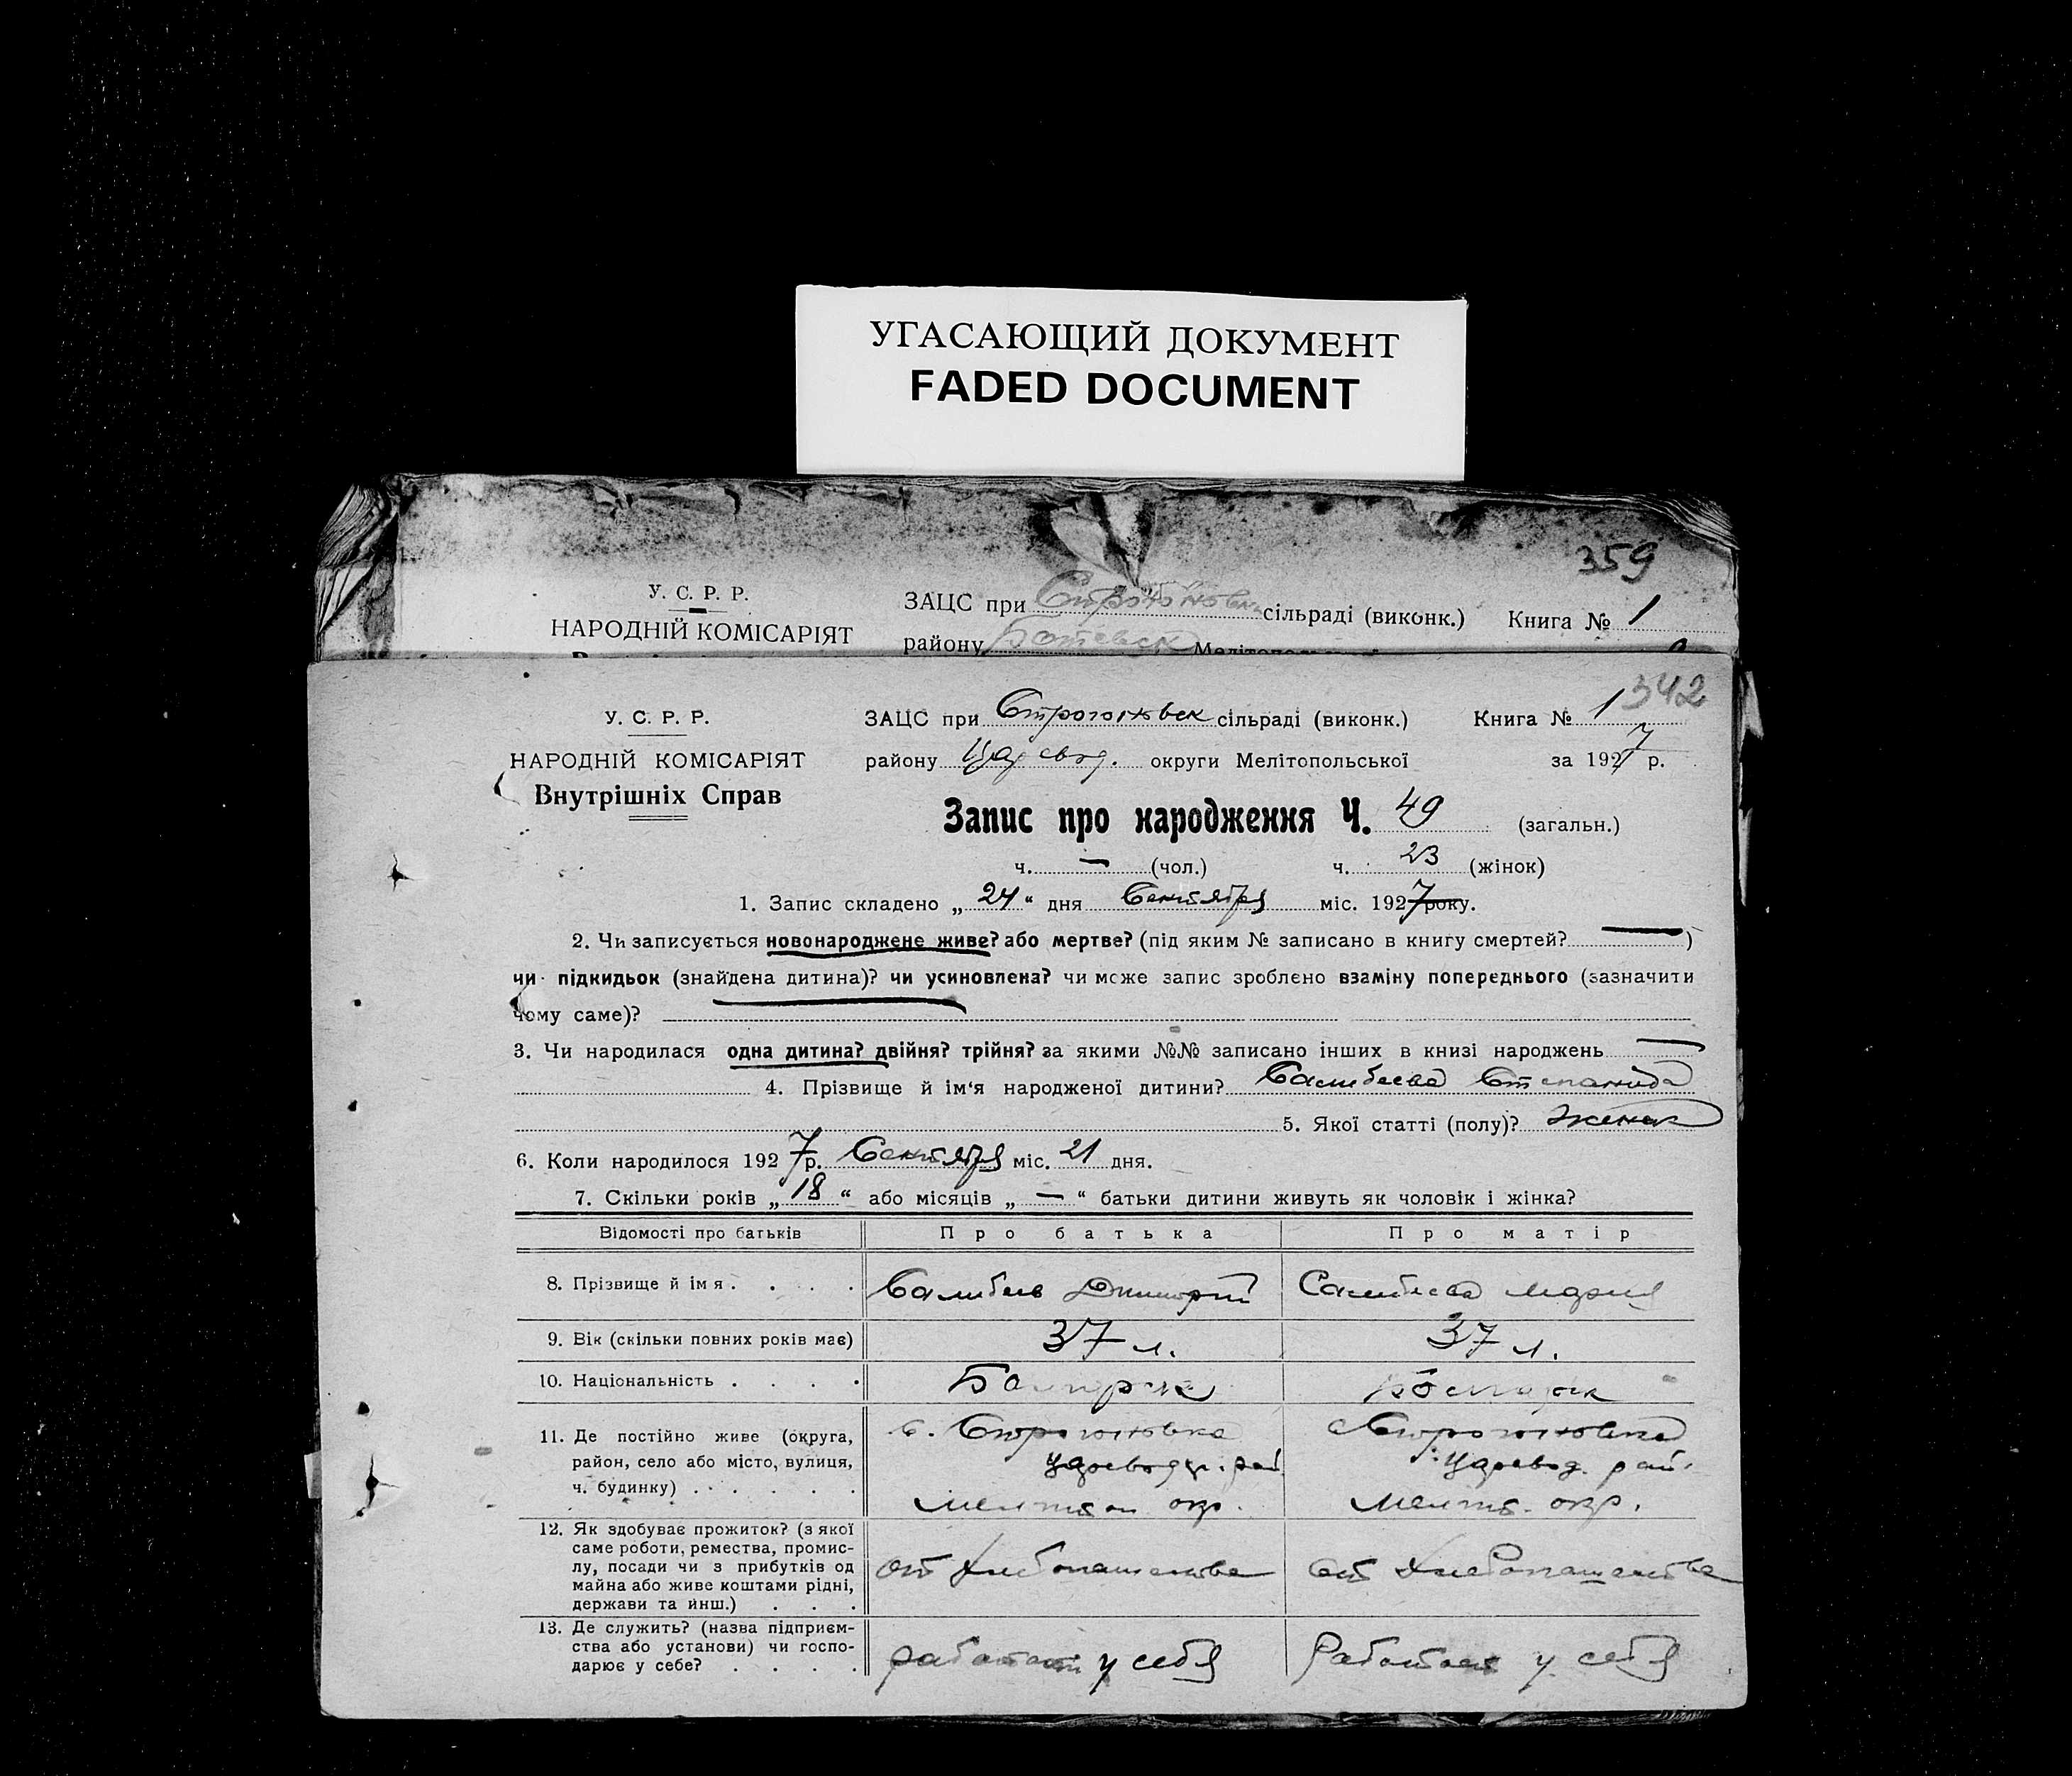 УГАСАЮЩИЙ ДОКУМЕНТ
FADED DOCUMENT
359
У. С. Р. Р.
НАРОДНІЙ КОМІСАРІЯТ
ЗАЦС при сільраді (виконк.) Книга № 1
району Ботевск
342
У. С. Р. Р.
НАРОДНІЙ КОМІСАРІЯТ
Внутрішніх Справ
ЗАЦС при Строгоновск сільраді (виконк.) Книга № 1
району Царевод. округи Мелітопольської за 1927 р.
Запис про народження Ч. 49 (загальн.)
ч. — (чол.) ч. 23 (жінок)
1. Запис складено „24“ дня Сентября міс. 1927 року.
2. Чи записується новонароджене живе? або мертве? (під яким № записано в книгу смертей? — )
чи підкидьок (знайдена дитина)? чи усиновлена? чи може запис зроблено взаміну попереднього (зазначити
чому саме)?
3. Чи народилася одна дитина? двійня? трійня? за якими №№ записано інших в книзі народжень —
4. Прізвище й ім‘я народженої дитини? Степанида
5. Якої статті (полу)? женск
6. Коли народилося 1927 р. Сентября міс. 21 дня.
7. Скільки років „18“ або місяців „—“ батьки дитини живуть як чоловік і жінка?
Відомості про батьків Про батька Про матір
8. Прізвище й імя . . . . Дмитрий Мария
9. Вік (скільки повних років має) 37 л. 37 л.
10. Національність . . . .
11. Де постійно живе (округа, с. Строгоновка с. Строгоновка
район, село або місто, вулиця, Царевод. рай. Царевод. рай.
ч. будинку) . . . . . . Мелитоп окр. Мелит. окр.
12. Як здобуває прожиток? (з якої
саме роботи, ремества, промис-
лу, посади чи з прибутків од от хлебопашества от хлебопашества
майна або живе коштами рідні,
держави та йнш.) . . .
13. Де служить? (назва підприєм-
ства або установи) чи госпо- работает у себя Работает у себя
дарює у себе? . . . .